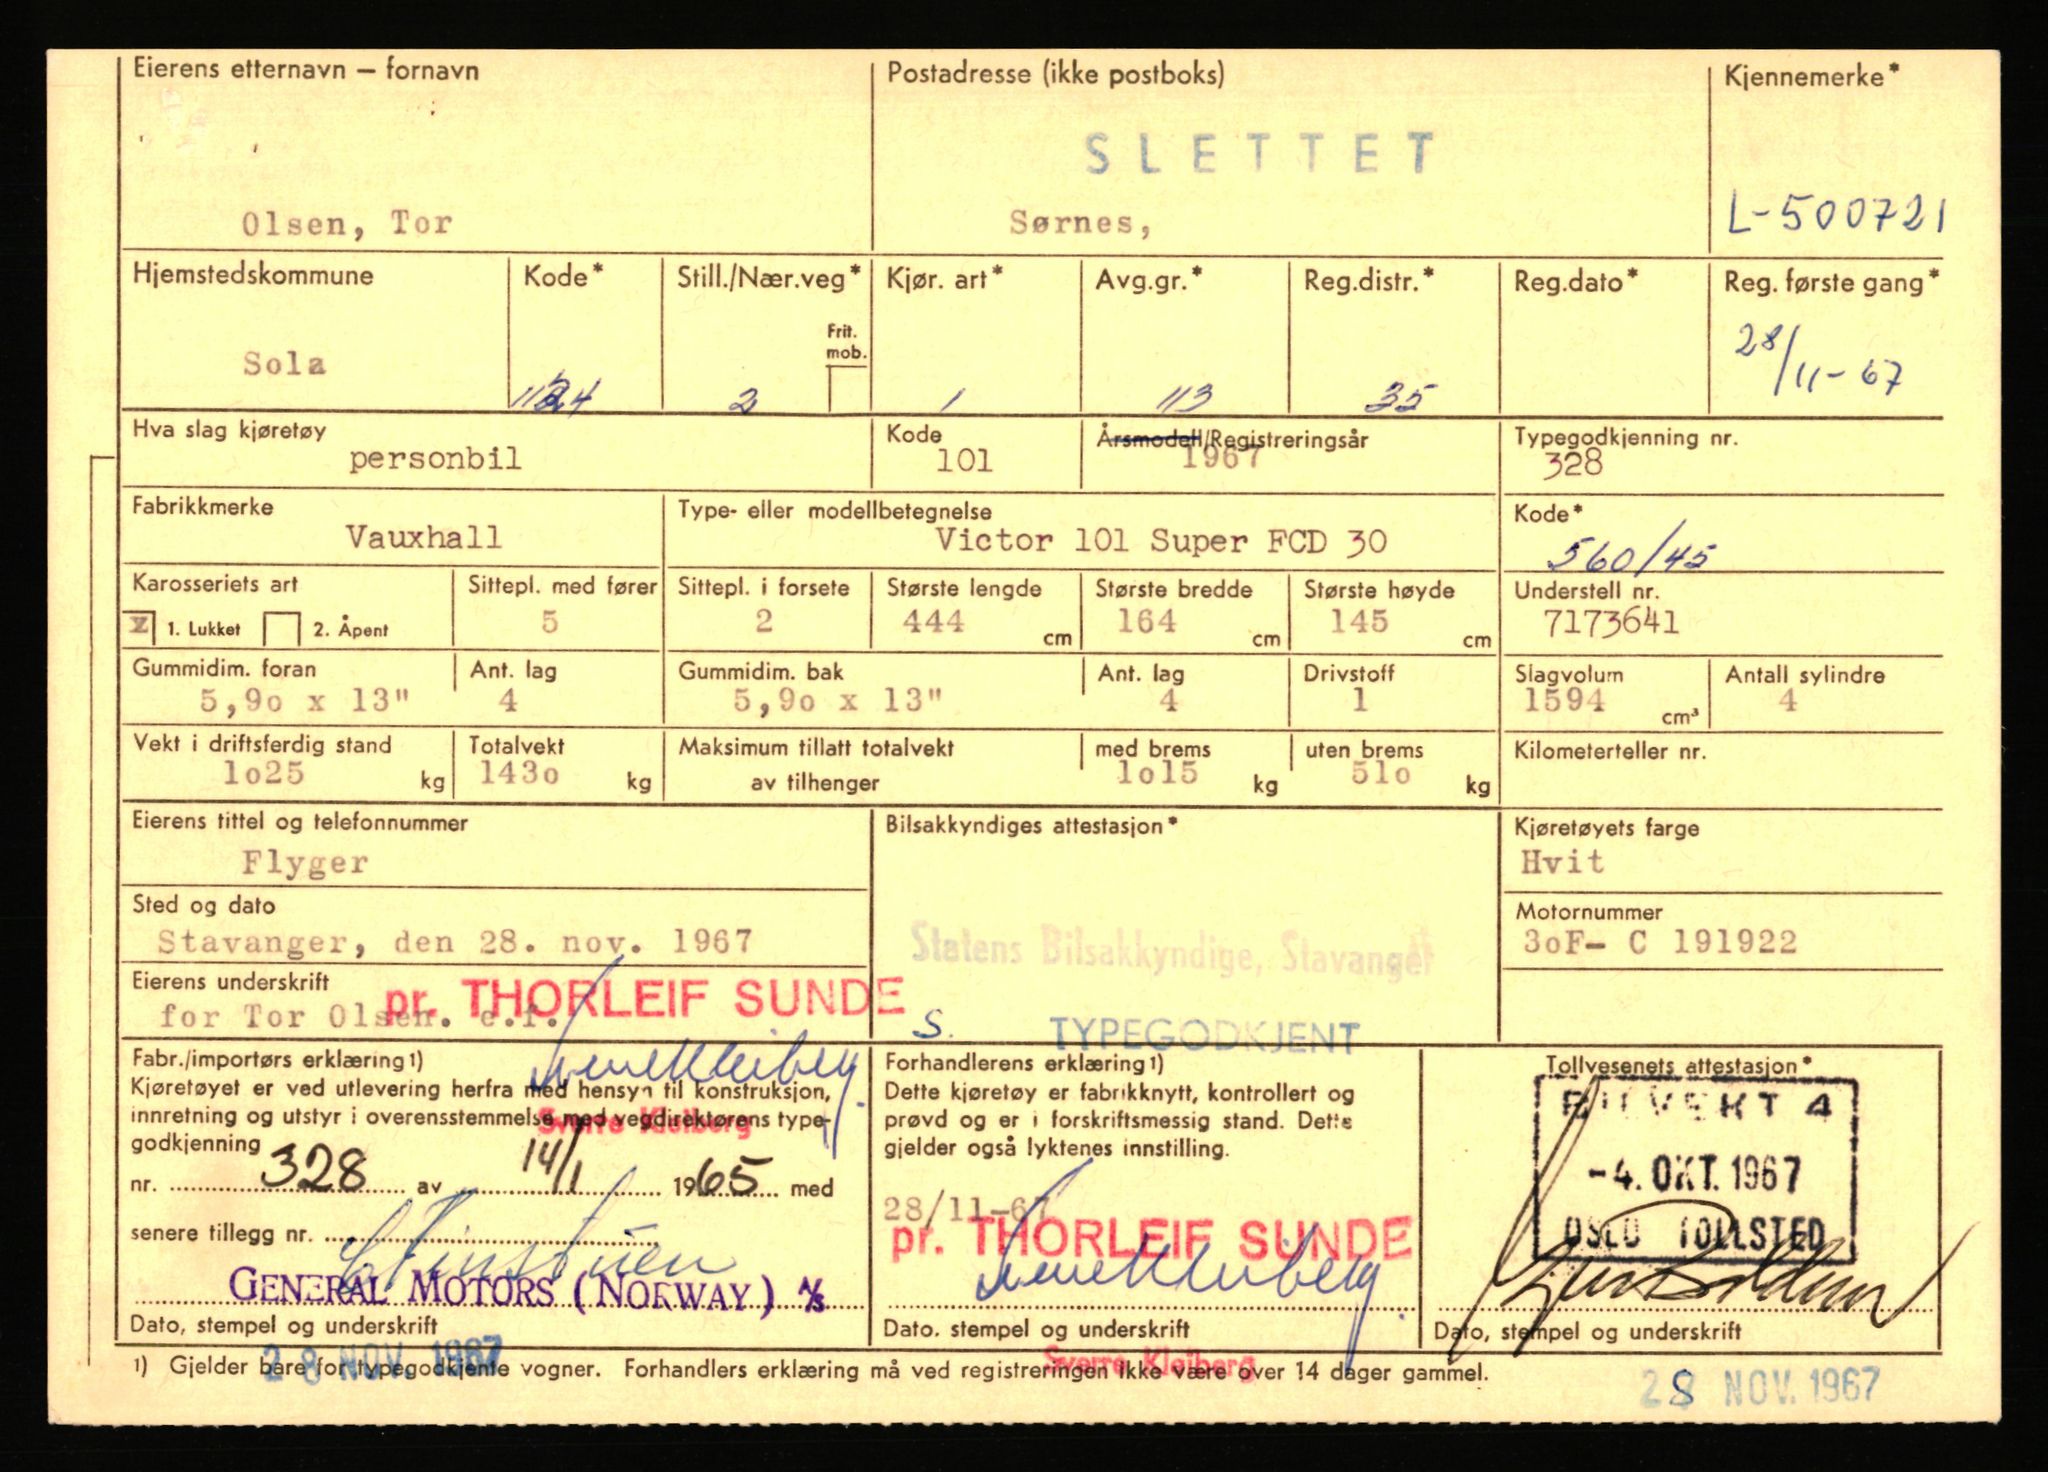 Eierens etternavn – fornavn Postadresse (ikke postboks) Kjennemerke*
SLETTET
Olsen, Tor Sørnes, L-500721
Hjemstedskommune Kode* Still./Nær.veg* Kjør. art* Avg.gr.* Reg.distr.* Reg.dato* Reg. første gang*
Frit. mob.
Sola 2 1 113 35 28/11-67
Hva slag kjøretøy Kode Årsmodell/Registreringsår Typegodkjenning nr.
personbil 101 1967 328
Fabrikkmerke Type- eller modellbetegnelse Kode*
Vauxhall Victor 101 Super FCD 30 560/45
Karosseriets art Sittepl. med fører Sittepl. i forsete Største lengde Største bredde Største høyde Understell nr.
X 1. Lukket 2. Åpent 5 2 444 cm 164 cm 145 cm 7173641
Gummidim. foran Ant. lag Gummidim. bak Ant. lag Drivstoff Slagvolum Antall sylindre
5,9o x 13" 4 5,9o x 13" 4 1 1594 cm³ 4
Vekt i driftsferdig stand Totalvekt Maksimum tillatt totalvekt med brems uten brems Kilometerteller nr.
1o25 kg 143o kg av tilhenger 1o15 kg 51o kg
Eierens tittel og telefonnummer Bilsakkyndiges attestasjon* Kjøretøyets farge
Flyger Hvit
Sted og dato Motornummer
Stavanger, den 28. nov. 1967 Statens Bilsakkyndige, Stavanger 3oF- C 191922
Eierens underskrift
pr. THORLEIF SUNDE
for Tor Olsen. e.f. S. TYPEGODKJENT
Sverre Kleiberg
Fabr./importørs erklæring 1) Forhandlerens erklæring 1) Tollvesenets attestasjon*
Kjøretøyet er ved utlevering herfra med hensyn til konstruksjon, Dette kjøretøy er fabrikknytt, kontrollert og BILVEKT 4
innretning og utstyr i overensstemmelse med vegdirektørens type- prøvd og er i forskriftsmessig stand. Dette
Sverre Kleiberg
godkjenning gjelder også lyktenes innstilling.
nr. 328 av 14/1 1965 med -4. OKT. 1967
28/11-67
senere tillegg nr. pr. THORLEIF SUNDE OSLO TOLLSTED
Sverre Kleiberg
GENERAL MOTORS (NORWAY) A/S
Dato, stempel og underskrift Dato. stempel og underskrift Dato, stempel og underskrift
28 NOV. 1967 Sverre Kleiberg
1) Gjelder bare for typegodkjente vogner. Forhandlers erklæring må ved registreringen ikke være over 14 dager gammel.
28 NOV. 1967